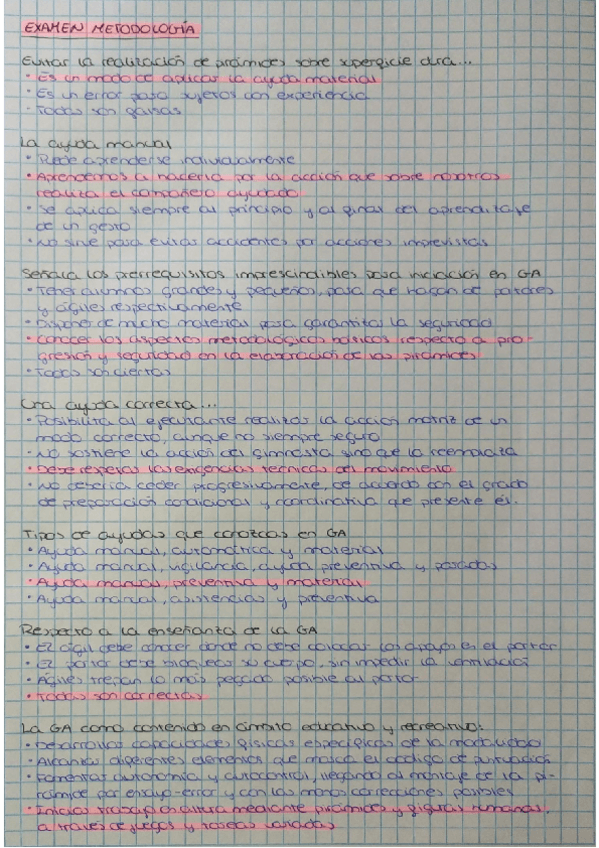 EXAMEN METODOLOGÍA
Evitar la realización de pirámides sobre superficie dura...
• Es un modo de aplicar la ayuda material
• Es un error para sujetos con experiencia
• Todas son falsas
La ayuda manual
• Puede aprenderse individualmente
• Aprendemos a hacerla por la acción que sobre nosotros
realiza el compañero ayudado
• Se aplica siempre al principio y al final del aprendizaje
de un gesto
• No sirve para evitar accidentes por acciones imprevistas
Señala los prerrequisitos imprescindibles para iniciación en GA
• Tener alumnos grandes y pequeños, para que hagan de portores
y ágiles respectivamente
• Disponer de mucho material para garantizar la seguridad
• Conocer los aspectos metodológicos básicos respecto a pro-
gresión y seguridad en la elaboración de las pirámides
• Todas son ciertas
Una ayuda correcta...
• Posibilita al ejecutante realizar la acción motriz de un
modo correcto, aunque no siempre seguro
• No sostiene la acción del gimnasta sino que la reemplaza
• Debe respetar las exigencias técnicas del movimiento
• No debería ceder progresivamente, de acuerdo con el grado
de preparación condicional y coordinativa que presente él.
Tipos de ayudas que conozcas en GA
• Ayuda manual, automática y material
• Ayuda manual, vigilancia, ayuda preventiva y pasadas
• Ayuda manual, preventiva y material
• Ayuda manual, asistencias y preventiva
Respecto a la enseñanza de la GA
• El ágil debe conocer donde no debe colocar los apoyos en el portor
• El portor debe bloquear su cuerpo, sin impedir la ventilación
• Ágiles trepan lo más pegado posible al portor
• Todas son correctas
La GA como contenido en ámbito educativo y recreativo:
• Desarrollar capacidades físicas específicas de la modalidad
• Alcanzar diferentes elementos que marca el código de puntuación
• Fomentar autonomía y autocontrol, llegando al montaje de la pi-
rámide por ensayo-error y con las menos correcciones posibles
• Iniciar trabajo en altura mediante pirámides y figuras humanas,
a través de juegos y tareas variadas